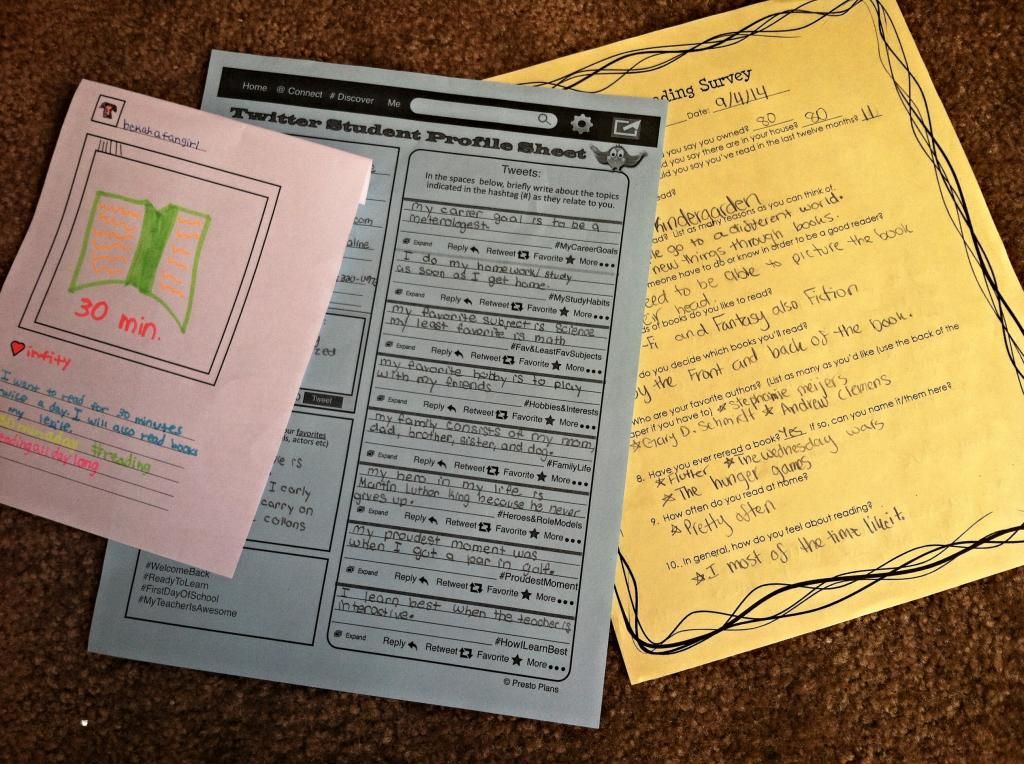 bekahafangirl
30 min.
infity
I want to read for 30 minutes
twice a day. I will also read books
my
#reading
readingalldaylong
Home @ Connect # Discover Me
Twitter Student Profile Sheet
com
Tweet
favorites
actors etc)
I carly
carry on
#WelcomeBack
#ReadyToLearn
#FirstDayOfSchool
#MyTeacherIsAwesome
Tweets:
In the spaces below, briefly write about the topics
indicated in the hashtag (#) as they relate to you.
my career goal is to be a
meterologest.
#MyCareerGoals
Expand Reply Retweet Favorite More...
I do my homework/study
as soon as I get home.
#MyStudyHabits
Expand Reply Retweet Favorite More...
my favorite subject is Science
my least favorite is math
#Fav&LeastFavSubjects
Expand Reply Retweet Favorite More...
my favorite hobby is to play
with my friends
#Hobbies&Interests
Expand Reply Retweet Favorite More...
my family consists of my mom,
dad, brother, sister, and dog.
#FamilyLife
Expand Reply Retweet Favorite More...
my hero in my life is
Martin Luther King because he never
gives up.
#Heroes&RoleModels
Expand Reply Retweet Favorite More...
my proudest moment was
when I got a par in golf.
#ProudestMoment
Expand Reply Retweet Favorite More...
I learn best when the teacher is
interactive.
#HowILearnBest
Expand Reply Retweet Favorite More...
© Presto Plans
ding Survey
Date: 9/4/14
you say you owned? 30
you say there are in your house? 80
you say you've read in the last twelve months? 11
Kindergarden
ad? List as many reasons as you can think of.
go to a different world.
new things through books.
meone have to do or know in order to be a good reader?
to be able to picture the book
head.
of books do you like to read?
Fi and Fantasy also Fiction
do you decide which books you'll read?
by the Front and back of the book.
who are your favorite authors? (List as many as you'd like (use the back of the
paper if you have to) ★ stephanie meijers
★ Gary D. Schmidt ★ Andrew Clemens
8. Have you ever reread a book? Yes. If so, can you name it/them here?
★ Flutter ★ The wednesday wars
★ The hunger games
9. How often do you read at home?
★ Pretty often
10. In general, how do you feel about reading?
★ I most of the time like it.